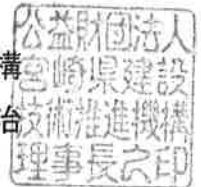 公益財団法人
宮崎県建設
技術推進機構
理事長之印